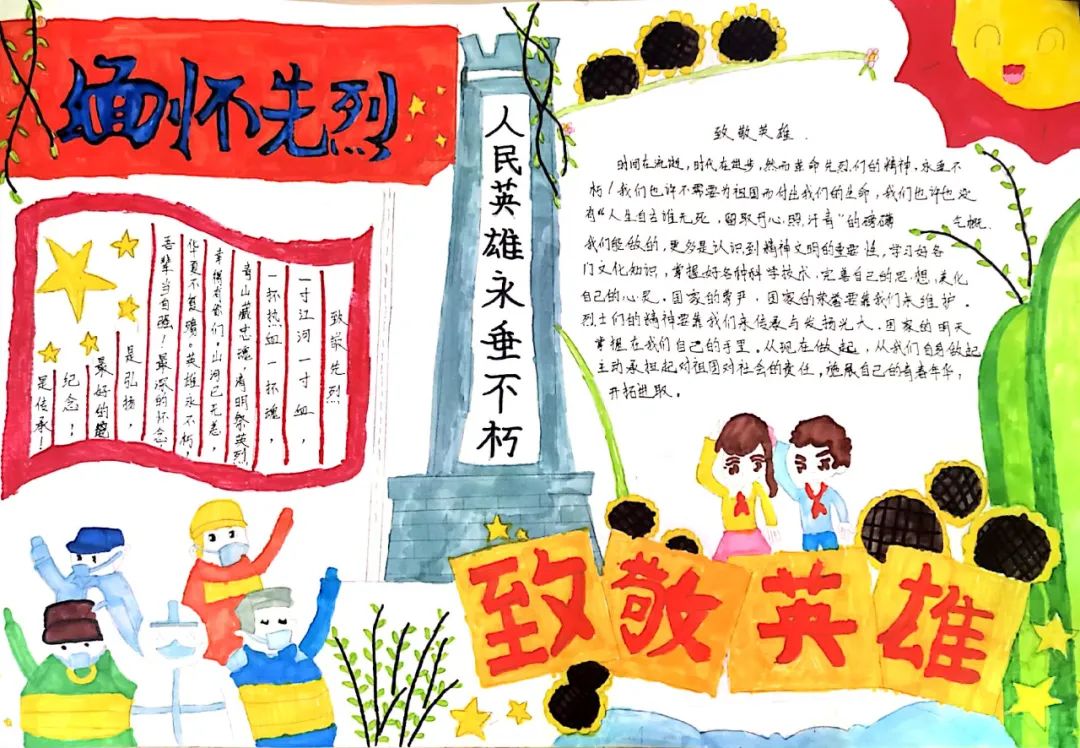 缅怀先烈
致敬先烈
一寸江河一寸血，
一抔热血一抔魂，
青山藏忠魂，清明祭英烈
幸得有你们，山河已无恙，
华夏不复殤。英雄永不朽，
吾辈当自强！最深的怀念
是弘扬，
最好的
纪念，
是传承！
人民英雄永垂不朽
致敬英雄.
时间在流逝，时代在进步，然而革命先烈们的精神，永垂不
朽！我们也许不需要为祖国而付出我们的生命，我们也许也没
有“人生自古谁无死，留取丹心照汗青”的磅礴 气概.
我们能做的，更多是认识到精神文明的重要性，学习好各
门文化知识，掌握好各种科学技术.完善自己的思想，美化
自己的心灵。国家的尊严，国家的荣誉要靠我们来维护.
烈士们的精神要靠我们来传承与发扬光大.国家的明天
掌握在我们自己的手里。从现在做起，从我们自身做起
主动承担起对祖国对社会的责任，施展自己的青春年华，
开拓进取。
致敬英雄